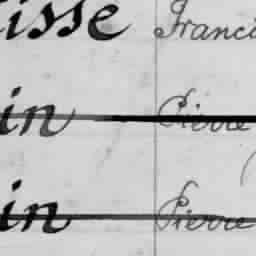 isse Franci
in Pierre
in Pierre